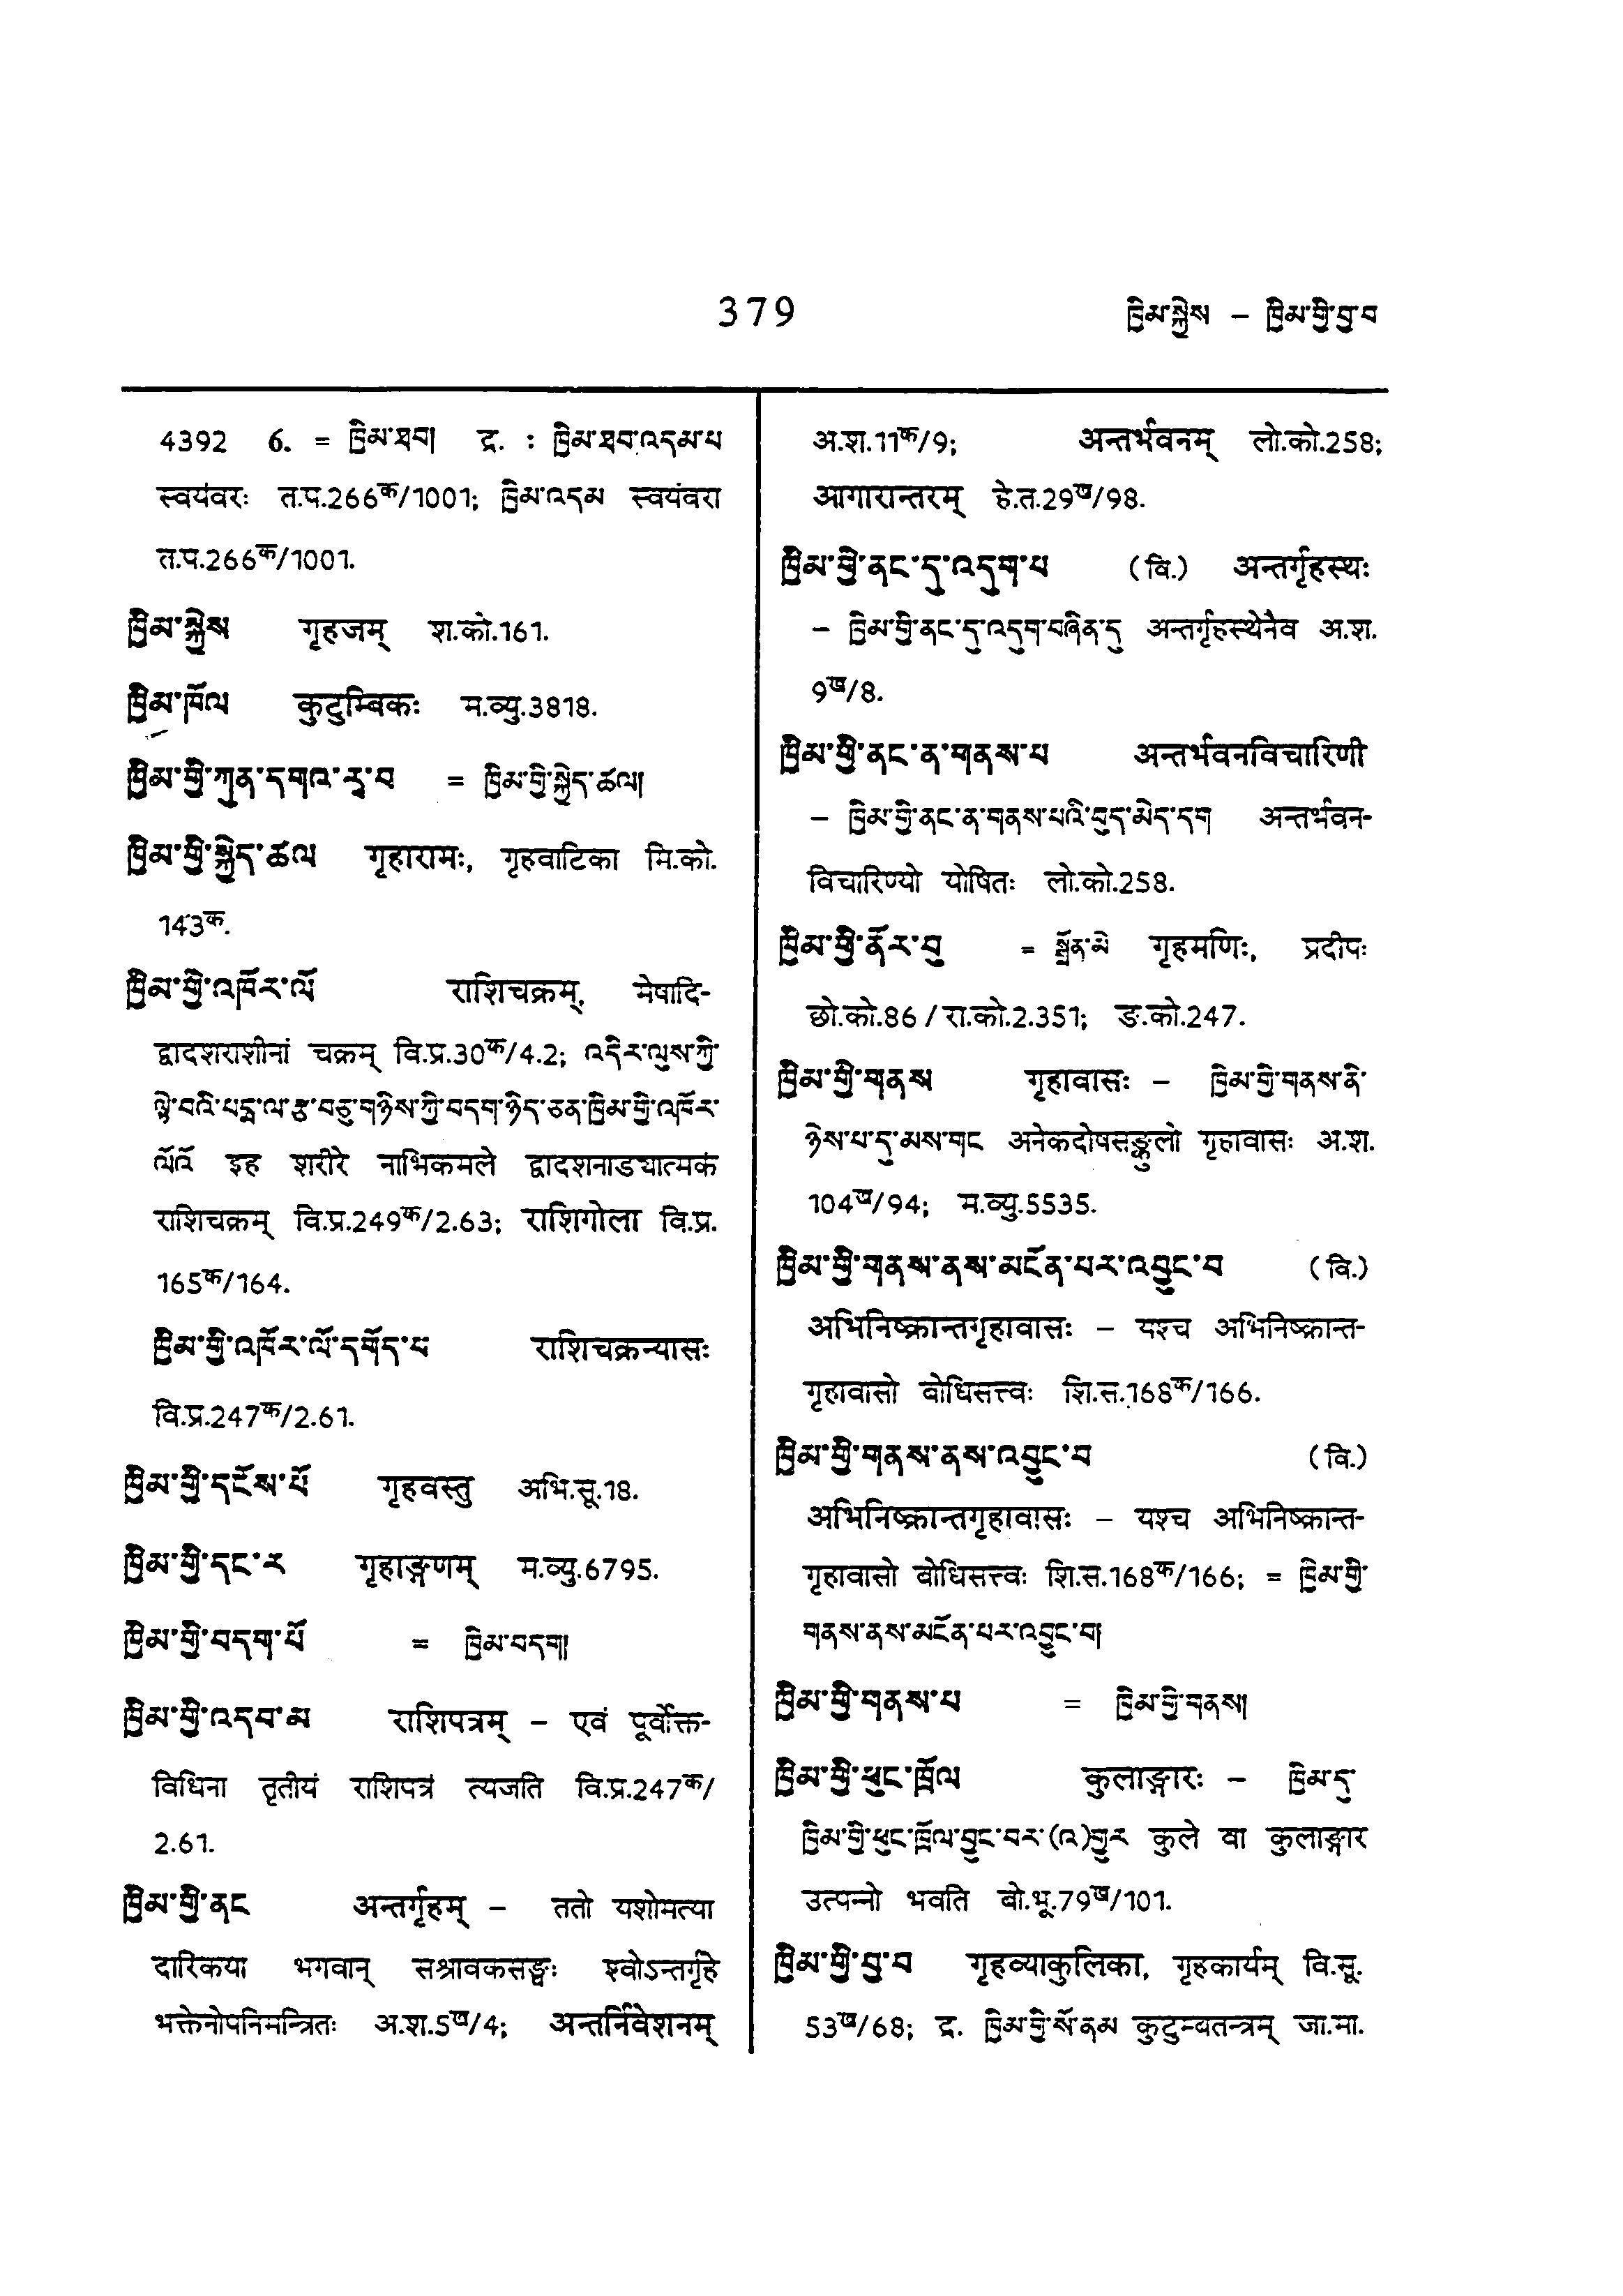 379
ཁྱིམ་སྐྱེས – ཁྱིམ་གྱི་བྱ་བ
4392 6. = ཁྱིམ་ཐབ། द्र. : ཁྱིམ་ཐབ་འདམ་པ
स्वयंवरः त.प.266क/1001; ཁྱིམ་འདམ स्वयंवरा
त.प.266क/1001.
ཁྱིམ་སྐྱེས गृहजम् श.को.161.
ཁྱིམ་ཁོལ कुटुम्बिकः म.व्यु.3818.
ཁྱིམ་གྱི་ཀུན་དགའ་ར་བ = ཁྱིམ་གྱི་སྐྱེད་ཚལ།
ཁྱིམ་གྱི་སྐྱེད་ཚལ गृहारामः, गृहवाटिका मि.को.
143क.
ཁྱིམ་གྱི་འཁོར་ལོ राशिचक्रम्, मेषादि-
द्वादशराशीनां चक्रम् वि.प्र.30क/4.2; འདིར་ལུས་ཀྱི་
ལྟེ་བའི་པདྨ་ལ་རྩ་བཅུ་གཉིས་ཀྱི་བདག་ཉིད་ཅན་ཁྱིམ་གྱི་འཁོར་
ལོའོ इह शरीरे नाभिकमले द्वादशनाड्यात्मकं
राशिचक्रम् वि.प्र.249क/2.63; राशिगोला वि.प्र.
165क/164.
ཁྱིམ་གྱི་འཁོར་ལོ་དགོད་པ राशिचक्रन्यासः
वि.प्र.247क/2.61.
ཁྱིམ་གྱི་དངོས་པོ गृहवस्तु अभि.सू.18.
ཁྱིམ་གྱི་དང་ར गृहाङ्गणम् म.व्यु.6795.
ཁྱིམ་གྱི་བདག་པོ = ཁྱིམ་བདག།
ཁྱིམ་གྱི་འདབ་མ राशिपत्रम् – एवं पूर्वोक्त-
विधिना तृतीयं राशिपत्रं त्यजति वि.प्र.247क/
2.61.
ཁྱིམ་གྱི་ནང अन्तर्गृहम् – ततो यशोमत्या
दारिकया भगवान् सश्रावकसङ्घः श्वोऽन्तर्गृहे
भक्तेनोपनिमन्त्रितः अ.श.5ख/4; अन्तर्निवेशनम्
अ.श.11क/9; अन्तर्भवनम् लो.को.258;
आगारान्तरम् हे.त.29ख/98.
ཁྱིམ་གྱི་ནང་དུ་འདུག་པ (वि.) अन्तर्गृहस्थः
– ཁྱིམ་གྱི་ནང་དུ་འདུག་བཞིན་དུ अन्तर्गृहस्थेनैव अ.श.
9ख/8.
ཁྱིམ་གྱི་ནང་ན་གནས་པ अन्तर्भवनविचारिणी
– ཁྱིམ་གྱི་ནང་ན་གནས་པའི་བུད་མེད་དག अन्तर्भवन-
विचारिण्यो योषितः लो.को.258.
ཁྱིམ་གྱི་ནོར་བུ = སྒྲོན་མེ गृहमणिः, प्रदीपः
छो.को.86/रा.को.2.351; ङ.को.247.
ཁྱིམ་གྱི་གནས गृहावासः – ཁྱིམ་གྱི་གནས་ནི་
ཉེས་པ་དུ་མས་གང अनेकदोषसङ्कुलो गृहावासः अ.श.
104ख/94; म.व्यु.5535.
ཁྱིམ་གྱི་གནས་ནས་མངོན་པར་འབྱུང་བ (वि.)
अभिनिष्क्रान्तगृहावासः – यश्च अभिनिष्क्रान्त-
गृहावासो बोधिसत्त्वः शि.स.168क/166.
ཁྱིམ་གྱི་གནས་ནས་འབྱུང་བ (वि.)
अभिनिष्क्रान्तगृहावासः – यश्च अभिनिष्क्रान्त-
गृहावासो बोधिसत्त्वः शि.स.168क/166; = ཁྱིམ་གྱི་
གནས་ནས་མངོན་པར་འབྱུང་བ།
ཁྱིམ་གྱི་གནས་པ = ཁྱིམ་གྱི་གནས།
ཁྱིམ་གྱི་ཕུང་ཁྲོལ कुलाङ्गारः – ཁྱིམ་དུ་
ཁྱིམ་གྱི་ཕུང་ཁྲོལ་བྱུང་བར་(འ)གྱུར कुले वा कुलाङ्गार
उत्पन्नो भवति बो.भू.79ख/101.
ཁྱིམ་གྱི་བྱ་བ गृहव्याकुलिका, गृहकार्यम् वि.सू.
53ख/68; द्र. ཁྱིམ་གྱི་སོ་ནམ कुटुम्बतन्त्रम् जा.मा.